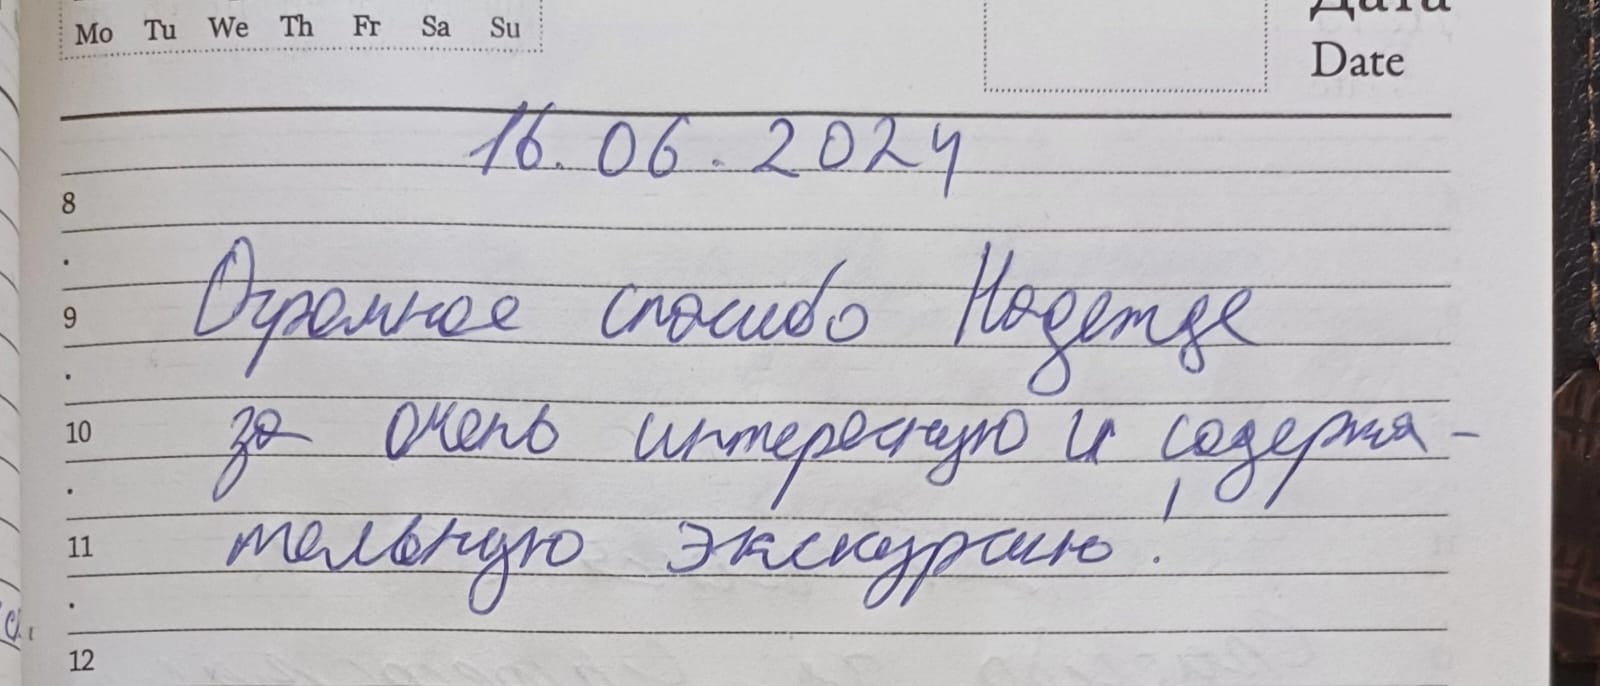 Mo Tu We Th Fr Sa Su
Дата
Date
16.06.2024
8
9 Огромное спасибо Надежде
10 за очень интересную и содержа-
11 тельную экскурсию!
12